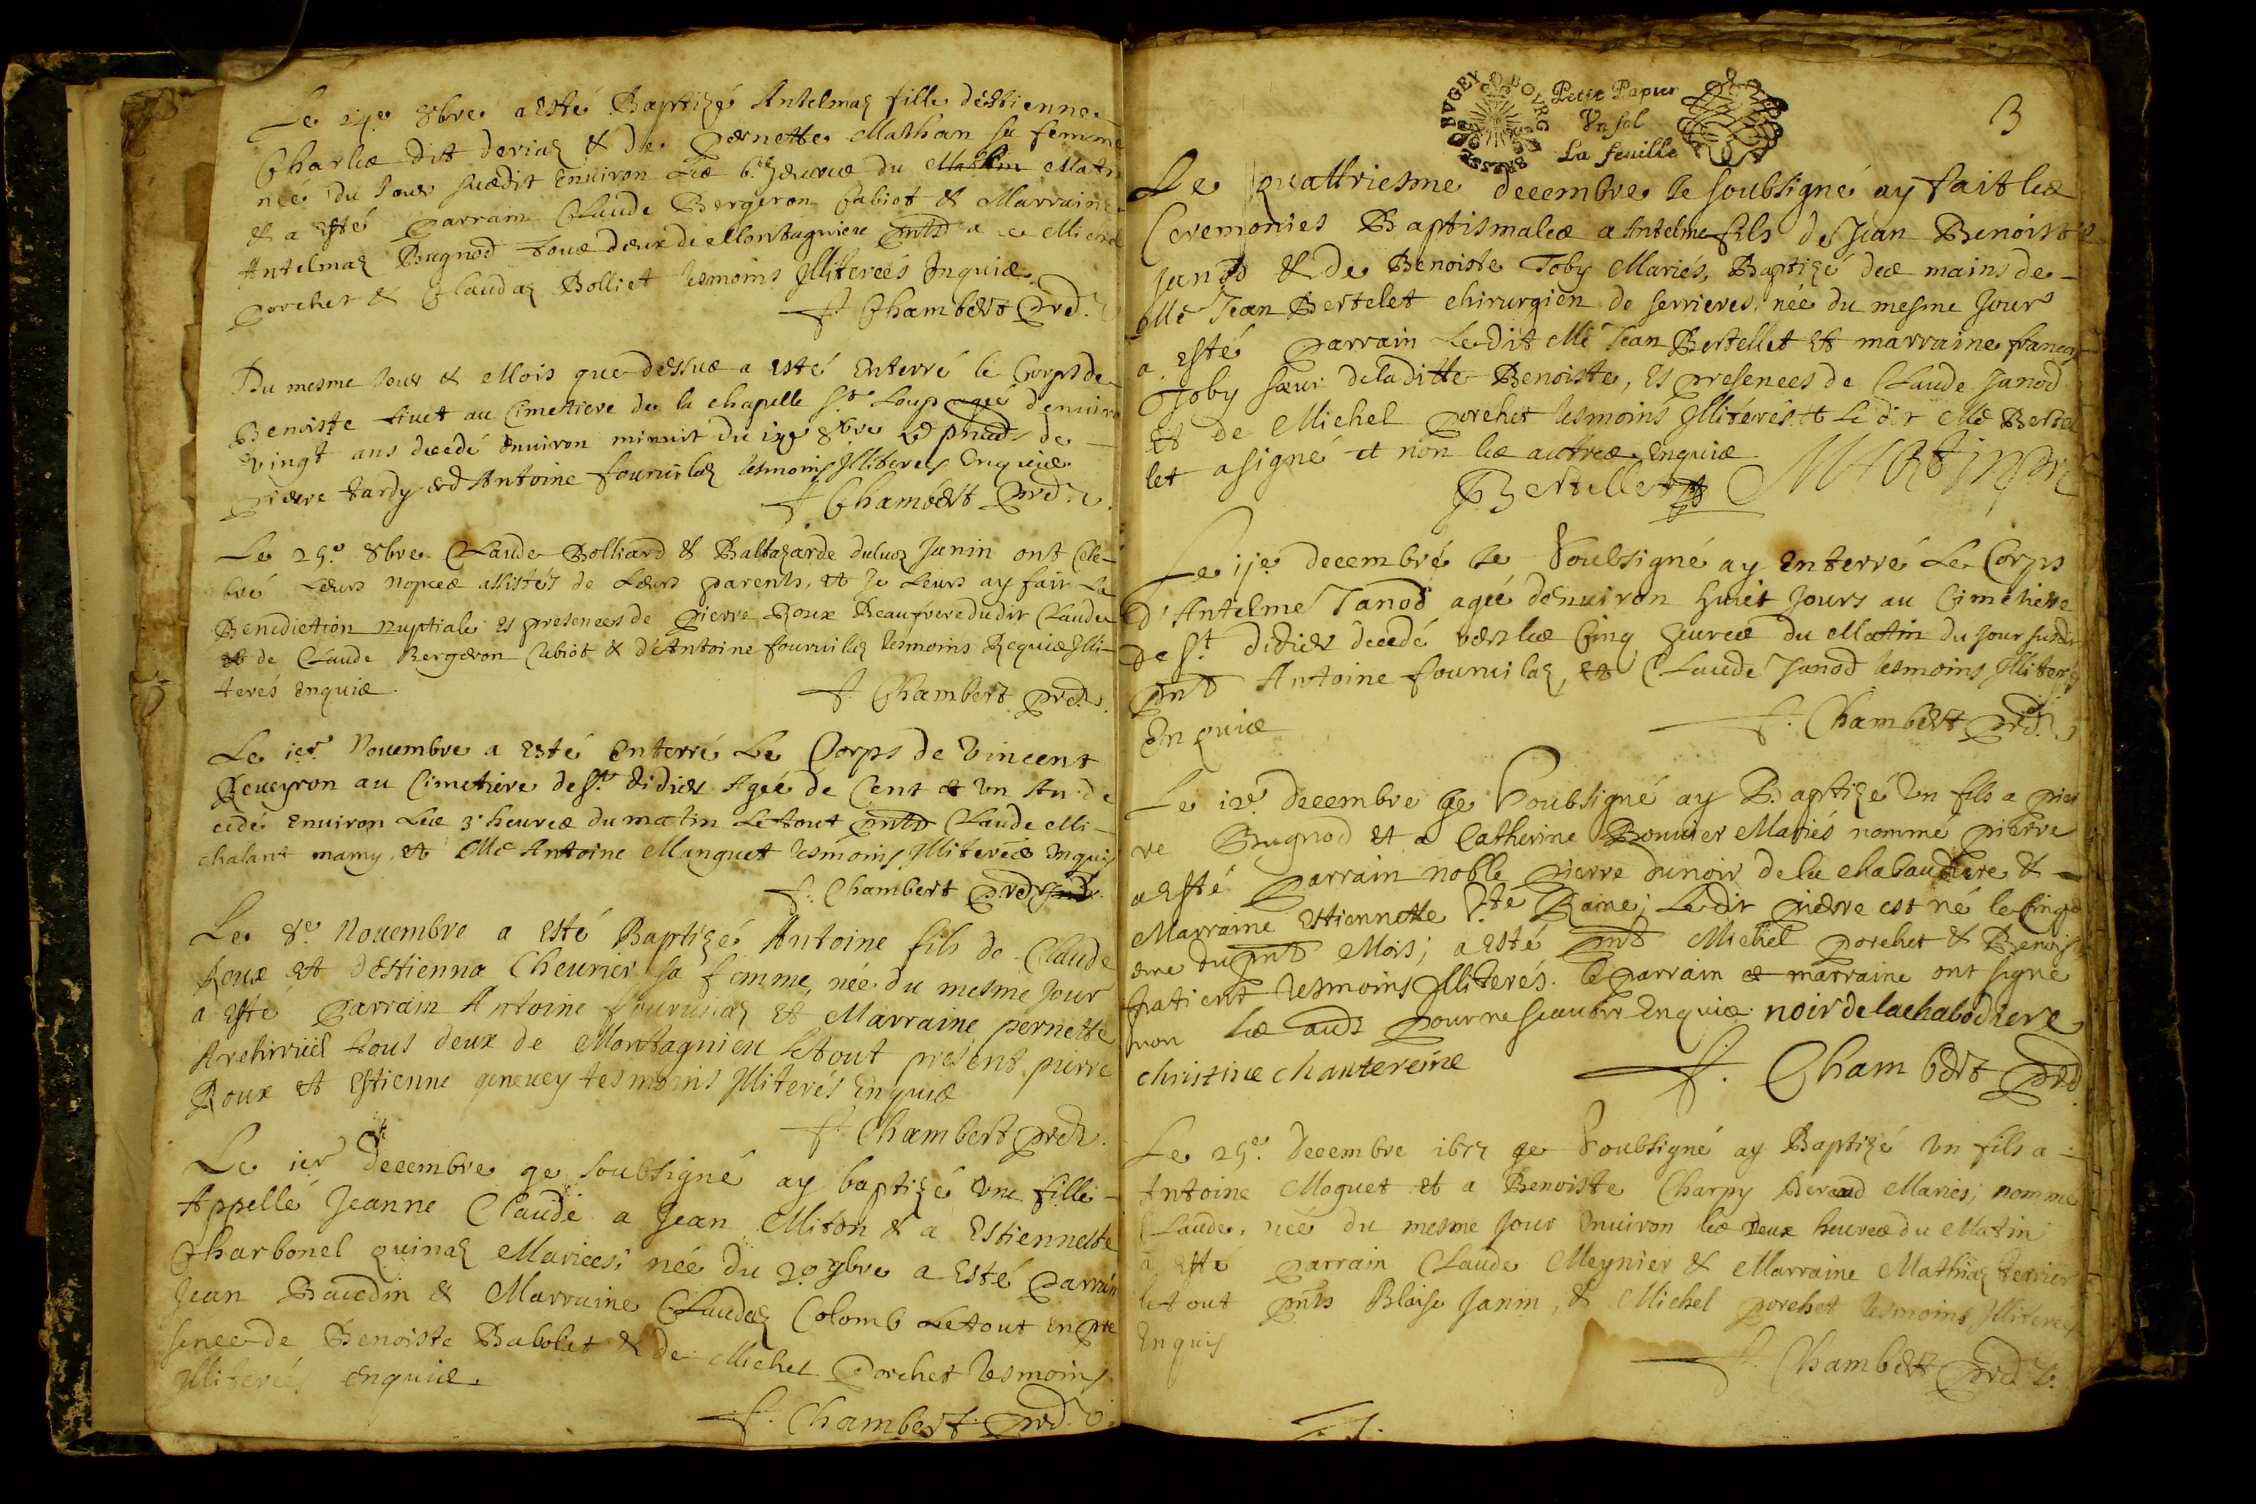 Le 14e 8bre a esté Baptizé Antelmaz fille d'estienne
Charlie dit deriaz & de pernette Mathan sa femme
née du Jour susdit environ les 6. heures du Matin Mati
& a esté parrain Claude Bergeron Cabiot & Marraine
Antelmaz Bugnod tous deux de Montagnieu pnts a ce Michel
porchet & Claudaz Bolliet tesmoins Illiterés Enquis
F. Chambert prd.
Du mesme Jour & Mois que dessus a esté Enterré le Corps de
Benoiste Livet au Cimetiere de la chapelle St Loup agée denviro
vingt ans decedé environ minuit du 14e 8bre de
pierre tardy Antoine fournilaz tesmoins Illiterés Enquis
F. Chambert prd.
Le 25e 8bre Claude Bolliard & Baltazarde duluoz Janin ont Cele-
bré Leurs nopces assistés de Leurs parents, et Je Leurs ay fait La
Benediction nuptiale es presences de pierre Roux Beaufrere dudit Claude
et de Claude Bergeron Cubiot & d'Antoine fournilaz tesmoins Requis Illi-
terés enquis
F. Chambert prd.
Le 1er Novembre a esté Enterré Le Corps de Vincent
Reveyron au Cimetiere de St didier Agée de Cent & Un An de
cedé environ Les 3e heures du matin Le tout pnts Claude Mi-
chalant mamy, et Me Antoine Manguet tesmoins Illiterés Enquis
F. Chambert prd.
Le 8e Novembre a esté Baptizé Antoine fils de Claude
Roux et d'Estienna Cheurier sa femme, née du mesme Jour
a esté parrain Antoine fournilaz et Marraine pernette
tous deux de Montagnieu Le tout present pierre
Roux et Estienne genevey tesmoins Illiterés Enquis
F. Chambert prd.
Le 1er Decembre Je soubsigné ay baptizé Une fille
Appellé Jeanne Claude a Jean Miton & a Estiennette
Charbonel quinaz Mariees; née du 30 9bre a esté parrain
Jean Baudin & Marraine Claudaz Colomb Le tout en pre
sence de Benoiste Babolet & de Michel porchet tesmoins
Illiterés enquis
F. Chambert prd.
BUGEY BOURG BRESSE
Petit Papier
Un sol
La feuille
3
Le quattriesme decembre Je soubsigné ay fait les
Ceremonies Baptismales a Antelme fils de Jean Benoist
Janod & de Benoiste Toby Mariés, Baptizé des mains de
Me Jean Bertelet chirurgien de serrieres, née du mesme Jour
a esté parrain Ledit Me Jean Bertellet et marraine francoy
Toby sœur de laditte Benoiste, es presences de Claude Janod
et de Michel porchet tesmoins Illiterés et Le dit Me Bertel
let a signé et non les autres Enquis
Bertellet Martin pr
Le 11e decembre Je Soubsigné ay Enterré Le Corps
d'Antelme Janod agée denviron huict Jours au Cimetiere
de St didier decedé vers les Cinq heures du Matin du Jour susd
pnts Antoine fournilaz, et Claude Janod tesmoins Illiterés
Enquis
F. Chambert prd.
Le 12e decembre Je Soubsigné ay Baptizé Un fils a pier
re Bugnod et a Catherine Bouvier Mariés nommé pierre
a esté parrain noble pierre dunoir de la chabaudiere &
Marraine Estiennette Raine; Ledit pierre est né le Cinq
sme du pnt Mois; a esté pnts Michel porchet & Benoist
fratient tesmoins Illiterés. le parrain et marraine ont signé
non les auts pour ne scavoir Enquis noir de lachabodiere
christine chantereine F. Chambert prd
Le 25e decembre 1677 Je Soubsigné ay Baptizé Un fils a
Antoine Moguet et a Benoiste Charpy Beraud Mariés; nommé
Claude, née du mesme Jour environ les deux heures du Matin
a esté parrain Claude Meynier & Marraine Mathiaz terrier
le tout pnts Blaise Janin, & Michel porchet tesmoins Illiterés
Enquis
F. Chambert prd.